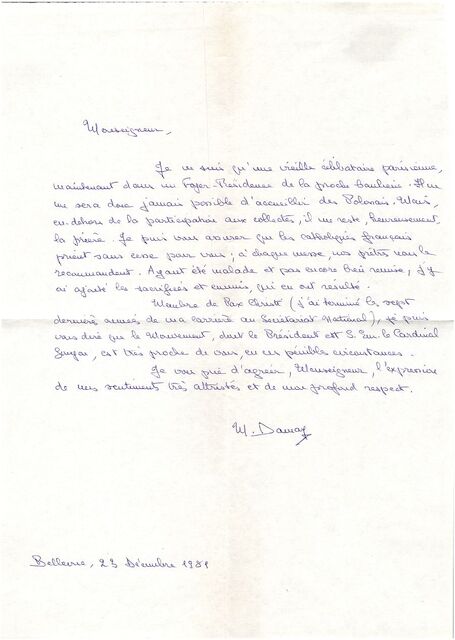 Monseigneur,
Je ne suis qu'une vieille célibataire parisienne,
maintenant dans un Foyer-Résidence de la proche banlieue. Il ne
me sera donc jamais possible d'accueillir des Polonais. Mais,
en dehors de la participation aux collectes, il me reste, heureusement,
la prière. Je puis vous assurer que les catholiques français
prient sans cesse pour vous ; à chaque messe, nos prêtres vous le
recommandent. Ayant été malade et pas encore bien remise, j'y
ai ajouté les sacrifices et ennuis, qui en ont résulté.
Membre de Pax Christi (j'ai terminé les sept
dernières années de ma carrière au Secrétariat National), je puis
vous dire que le Mouvement, dont le Président est S. Em. le Cardinal
Gouyon, est très proche de vous, en ces pénibles circonstances.
Je vous prie d'agréer, Monseigneur, l'expression
de mes sentiments très attristés et de mon profond respect.
M.
Bellevue, 23 Décembre 1981